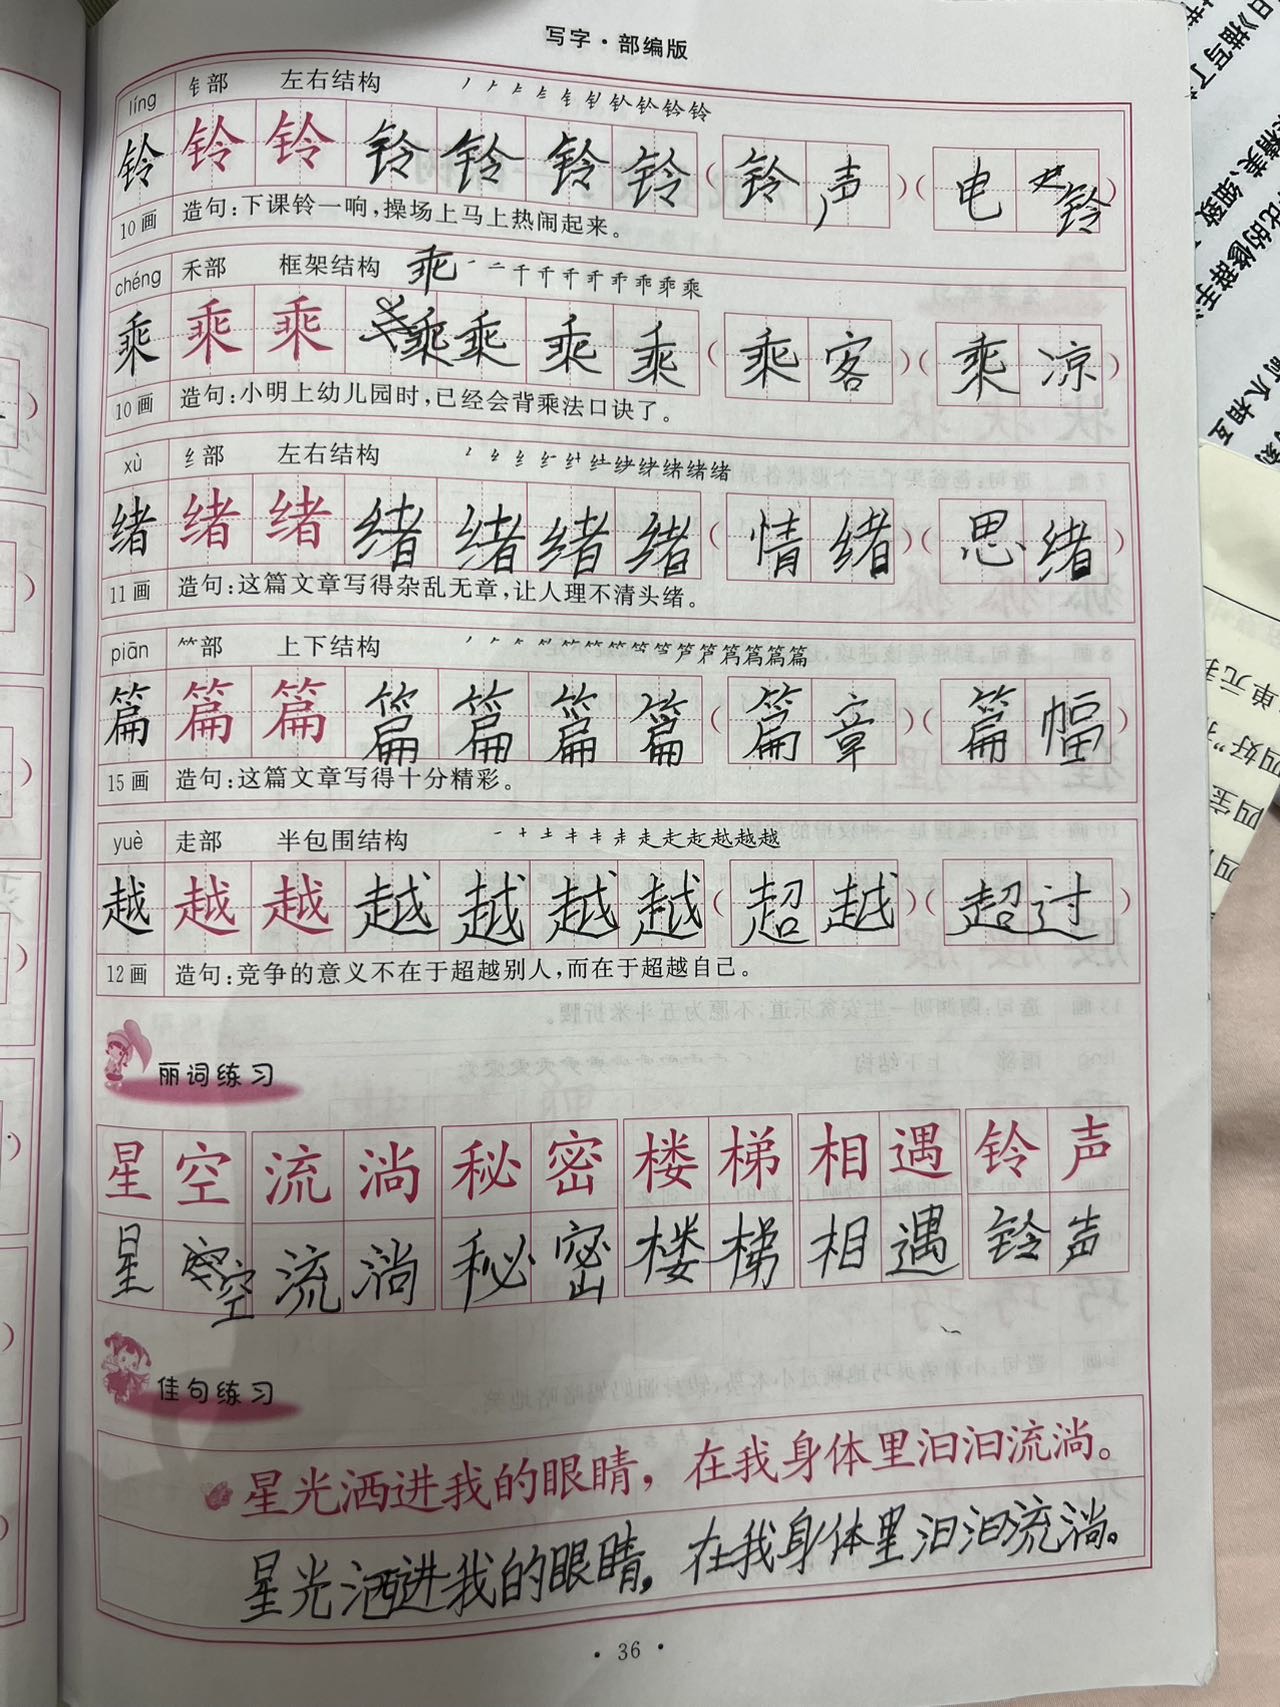 写字·部编版
líng 钅部 左右结构
铃 铃 铃 铃 铃 铃 铃 (铃声)(电铃)
10画 造句:下课铃一响,操场上马上热闹起来。
chéng 禾部 框架结构 乘
乘 乘 乘 乘 乘 乘 乘 (乘客)(乘凉)
10画 造句:小明上幼儿园时,已经会背乘法口诀了。
xù 纟部 左右结构
绪 绪 绪 绪 绪 绪 绪 (情绪)(思绪)
11画 造句:这篇文章写得杂乱无章,让人理不清头绪。
piān ⺮部 上下结构
篇 篇 篇 篇 篇 篇 篇 (篇章)(篇幅)
15画 造句:这篇文章写得十分精彩。
yuè 走部 半包围结构
越 越 越 越 越 越 越 (超越)(超过)
12画 造句:竞争的意义不在于超越别人,而在于超越自己。
丽词练习
星空 流淌 秘密 楼梯 相遇 铃声
星空 流淌 秘密 楼梯 相遇 铃声
佳句练习
星光洒进我的眼睛,在我身体里汩汩流淌。
星光洒进我的眼睛,在我身体里汩汩流淌。
·36·